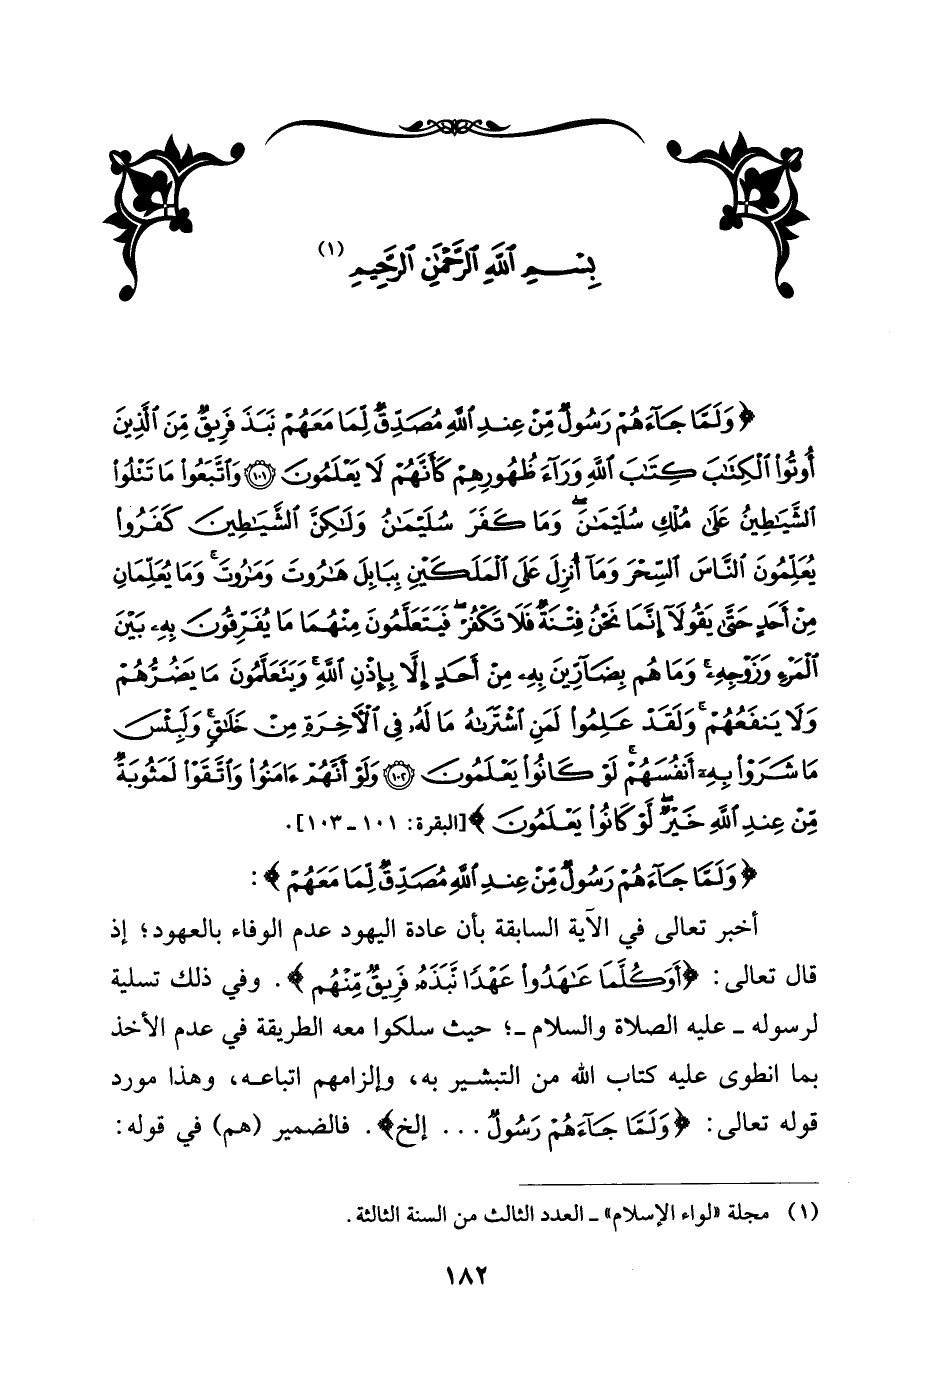 بِسْمِ ٱللَّهِ ٱلرَّحْمَٰنِ ٱلرَّحِيمِ (١)
﴿وَلَمَّا جَآءَهُمْ رَسُولٌ مِّنْ عِندِ ٱللَّهِ مُصَدِّقٌ لِّمَا مَعَهُمْ نَبَذَ فَرِيقٌ مِّنَ ٱلَّذِينَ
أُوتُوا۟ ٱلْكِتَٰبَ كِتَٰبَ ٱللَّهِ وَرَآءَ ظُهُورِهِمْ كَأَنَّهُمْ لَا يَعْلَمُونَ ۝١٠١ وَٱتَّبَعُوا۟ مَا تَتْلُوا۟
ٱلشَّيَٰطِينُ عَلَىٰ مُلْكِ سُلَيْمَٰنَ ۖ وَمَا كَفَرَ سُلَيْمَٰنُ وَلَٰكِنَّ ٱلشَّيَٰطِينَ كَفَرُوا۟
يُعَلِّمُونَ ٱلنَّاسَ ٱلسِّحْرَ وَمَآ أُنزِلَ عَلَى ٱلْمَلَكَيْنِ بِبَابِلَ هَٰرُوتَ وَمَٰرُوتَ ۚ وَمَا يُعَلِّمَانِ
مِنْ أَحَدٍ حَتَّىٰ يَقُولَآ إِنَّمَا نَحْنُ فِتْنَةٌ فَلَا تَكْفُرْ ۖ فَيَتَعَلَّمُونَ مِنْهُمَا مَا يُفَرِّقُونَ بِهِۦ بَيْنَ
ٱلْمَرْءِ وَزَوْجِهِۦ ۚ وَمَا هُم بِضَآرِّينَ بِهِۦ مِنْ أَحَدٍ إِلَّا بِإِذْنِ ٱللَّهِ ۚ وَيَتَعَلَّمُونَ مَا يَضُرُّهُمْ
وَلَا يَنفَعُهُمْ ۚ وَلَقَدْ عَلِمُوا۟ لَمَنِ ٱشْتَرَىٰهُ مَا لَهُۥ فِى ٱلْءَاخِرَةِ مِنْ خَلَٰقٍ ۚ وَلَبِئْسَ
مَا شَرَوْا۟ بِهِۦٓ أَنفُسَهُمْ ۚ لَوْ كَانُوا۟ يَعْلَمُونَ ۝١٠٢ وَلَوْ أَنَّهُمْ ءَامَنُوا۟ وَٱتَّقَوْا۟ لَمَثُوبَةٌ
مِّنْ عِندِ ٱللَّهِ خَيْرٌ ۖ لَّوْ كَانُوا۟ يَعْلَمُونَ﴾ [البقرة: ١٠١ ـ ١٠٣].
﴿وَلَمَّا جَآءَهُمْ رَسُولٌ مِّنْ عِندِ ٱللَّهِ مُصَدِّقٌ لِّمَا مَعَهُمْ﴾:
أخبر تعالى في الآية السابقة بأن عادة اليهود عدم الوفاء بالعهود؛ إذ
قال تعالى: ﴿أَوَكُلَّمَا عَٰهَدُوا۟ عَهْدًا نَّبَذَهُۥ فَرِيقٌ مِّنْهُم﴾. وفي ذلك تسلية
لرسوله ـ عليه الصلاة والسلام ـ؛ حيث سلكوا معه الطريقة في عدم الأخذ
بما انطوى عليه كتاب الله من التبشير به، وإلزامهم اتباعه، وهذا مورد
قوله تعالى: ﴿وَلَمَّا جَآءَهُمْ رَسُولٌ ... إلخ﴾. فالضمير (هم) في قوله:
(١) مجلة «لواء الإسلام» ـ العدد الثالث من السنة الثالثة.
١٨٢